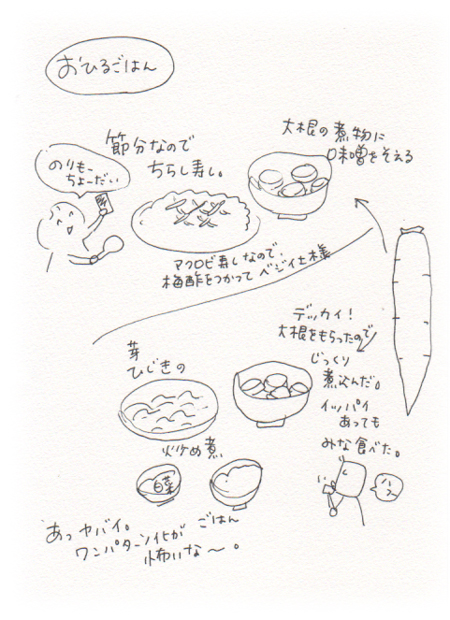 おひるごはん
節分なので
ちらし寿し。
のりもー
ちょーだい
大根の煮物に
味噌をそえる
マクロビ寿しなので、
梅酢をつかって ベジィ仕様
デッカイ!
大根をもらったので
じっくり
煮込んだ。
イッパイ
あっても
みな食べた。
芽
ひじきの
炒め煮
白菜
ごはん
あっヤバイ。
ワンパターン化が
怖いな〜。